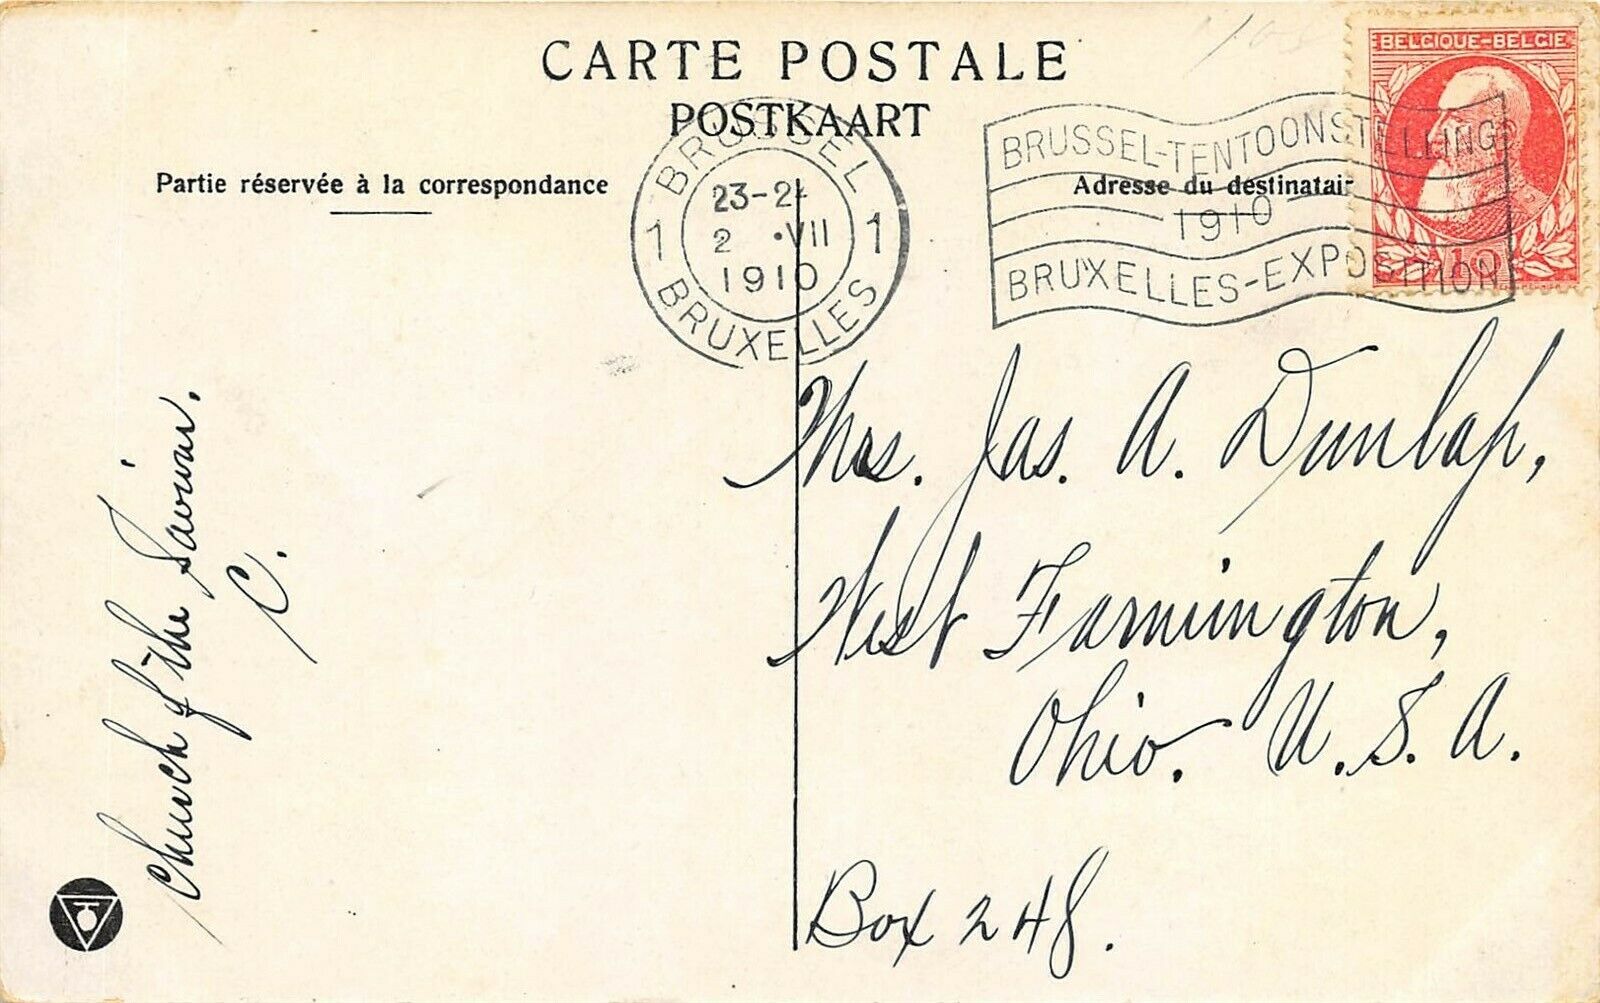 CARTE POSTALE
POSTKAART
Partie réservée à la correspondance
Adresse du destinatair
BRUSSEL
1 1
23-24
2 •VII
1910
BRUXELLES
BRUSSEL-TENTOONSTELLING
1910
BRUXELLES-EXPOSITION
BELGIQUE-BELGIE
10
Church of the Saviour.
C.
Mrs. Jas. A. Dunlap,
West Farmington,
Ohio. U. S. A.
Box 248.